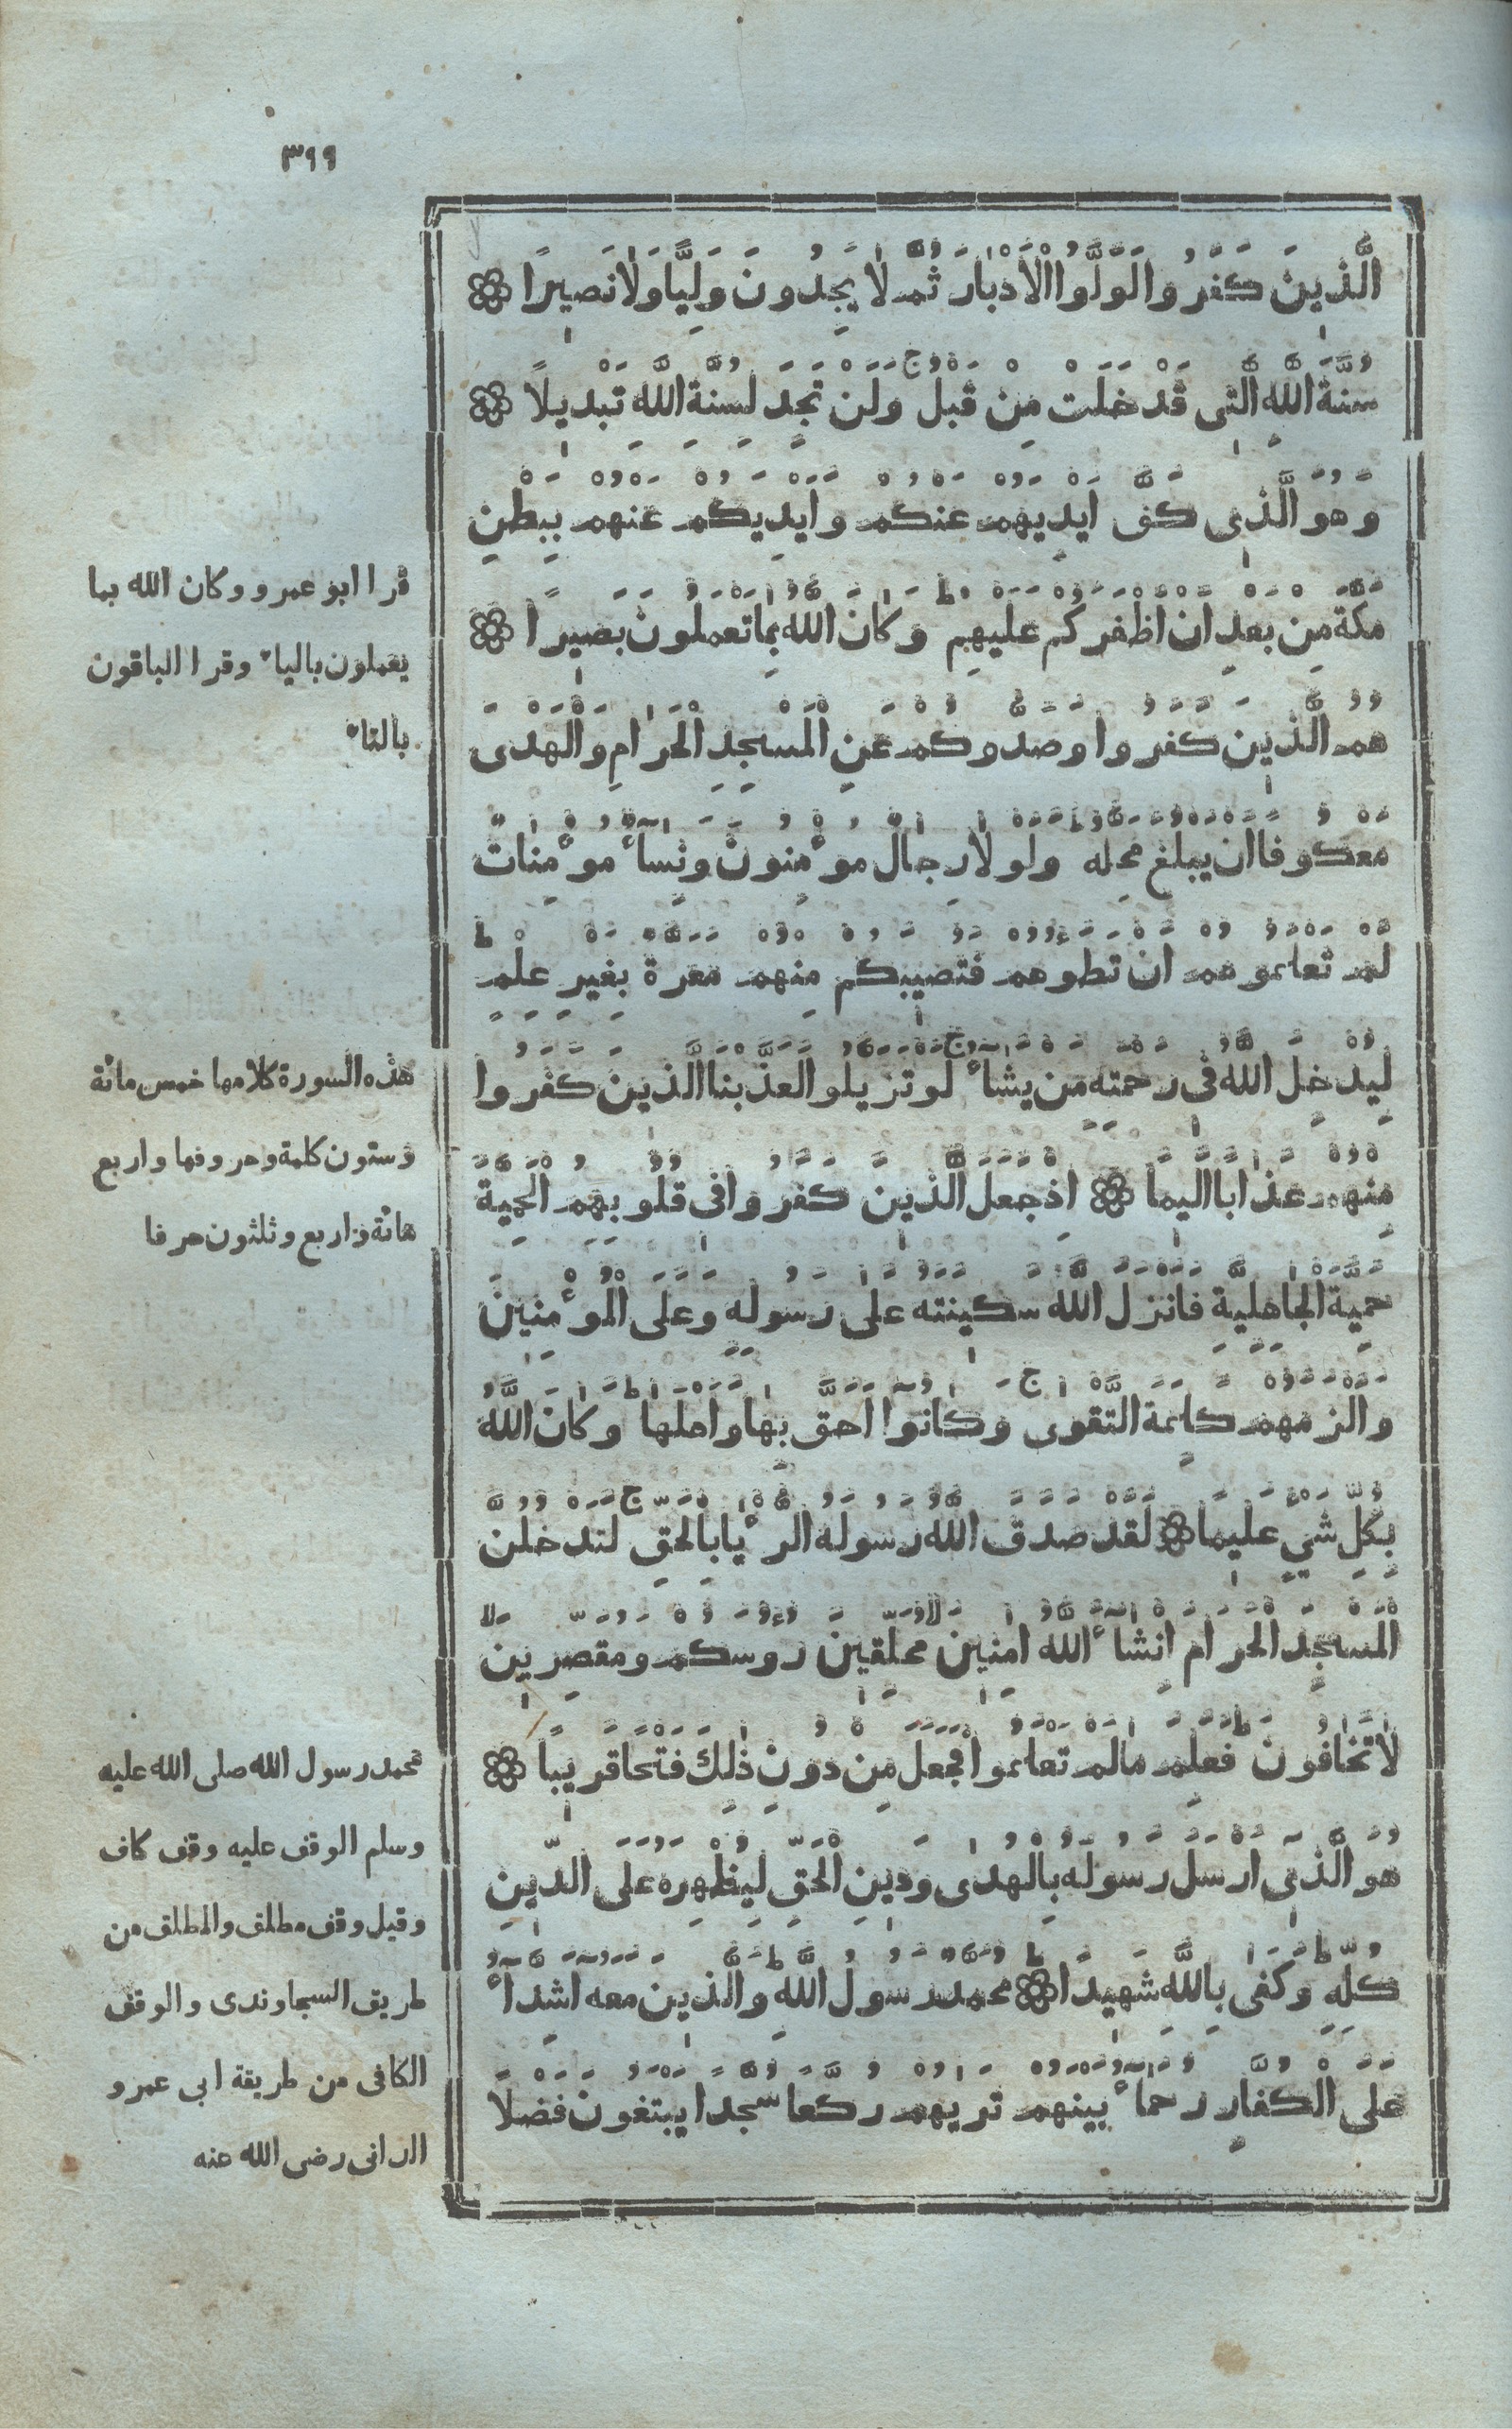 ٣٩٩
الَّذِينَ كَفَرُوا لَوَلَّوُا الْأَدْبَارَ ثُمَّ لَا يَجِدُونَ وَلِيًّا وَلَا نَصِيرًا
سُنَّةَ اللَّهِ الَّتِى قَدْ خَلَتْ مِنْ قَبْلُ ج وَلَنْ تَجِدَ لِسُنَّةِ اللَّهِ تَبْدِيلًا
وَهُوَ الَّذِى كَفَّ اَيْدِيَهُمْ عَنْكُمْ وَاَيْدِيَكُمْ عَنْهُمْ بِبَطْنِ
مَكَّةَ مِنْ بَعْدِ اَنْ اَظْفَرَكُمْ عَلَيْهِمْ ط وَكَانَ اللَّهُ بِمَا تَعْمَلُونَ بَصِيرًا
هُمُ الَّذِينَ كَفَرُوا وَصَدُّوكُمْ عَنِ الْمَسْجِدِ الْحَرَامِ وَالْهَدْىَ
مَعْكُوفًا اَنْ يَبْلُغَ مَحِلَّهُ ط وَلَوْلَا رِجَالٌ مُؤْمِنُونَ وَنِسَآٌٔ مُؤْمِنَاتٌ
لَمْ تَعْلَمُوهُمْ اَنْ تَطَؤُهُمْ فَتُصِيبَكُمْ مِنْهُمْ مَعَرَّةٌ بِغَيْرِ عِلْمٍ ط
لِيُدْخِلَ اللَّهُ فِى رَحْمَتِهِ مَنْ يَشَآُٔ ج لَوْ تَزَيَّلُوا لَعَذَّبْنَا الَّذِينَ كَفَرُوا
مِنْهُمْ عَذَابًا اَلِيمًا اِذْ جَعَلَ الَّذِينَ كَفَرُوا فِى قُلُوبِهِمُ الْحَمِيَّةَ
حَمِيَّةَ الْجَاهِلِيَّةِ فَاَنْزَلَ اللَّهُ سَكِينَتَهُ عَلَى رَسُولِهِ وَعَلَى الْمُؤْمِنِينَ
وَاَلْزَمَهُمْ كَلِمَةَ التَّقْوَى ج وَكَانُوٓا اَحَقَّ بِهَا وَاَهْلَهَا ط وَكَانَ اللَّهُ
بِكُلِّ شَىْءٍ عَلِيمًا لَقَدْ صَدَقَ اللَّهُ رَسُولَهُ الرُّءْيَا بِالْحَقِّ ج لَتَدْخُلُنَّ
الْمَسْجِدَ الْحَرَامَ اِنْ شَآَٔ اللَّهُ اٰمِنِينَ لا مُحَلِّقِينَ رُؤُسَكُمْ وَمُقَصِّرِينَ لا
لَا تَخَافُونَ ط فَعَلِمَ مَا لَمْ تَعْلَمُوا فَجَعَلَ مِنْ دُونِ ذٰلِكَ فَتْحًا قَرِيبًا
هُوَ الَّذِىٓ اَرْسَلَ رَسُولَهُ بِالْهُدٰى وَدِينِ الْحَقِّ لِيُظْهِرَهُ عَلَى الدِّينِ
كُلِّهِ ط وَكَفَى بِاللَّهِ شَهِيدًا ط مُحَمَّدٌ رَسُولُ اللَّهِ ط وَالَّذِينَ مَعَهُ اَشِدَّآُٔ
عَلَى الْكُفَّارِ رُحَمَآُٔ بَيْنَهُمْ تَرٰيهُمْ رُكَّعًا سُجَّدًا يَبْتَغُونَ فَضْلًا
قرا ابو عمرو وكان الله بما
يعملون بالياء وقرا الباقون
بالتاء
هذه السورة كلامها خمس مائة
وستون كلمة وحروفها واربع
مائة واربع وثلثون حرفا
محمد رسول الله صلى الله عليه
وسلم الوقف عليه وقف كاف
وقيل وقف مطلق والمطلق من
طريق السجاوندى والوقف
الكافى من طريقة ابى عمرو
الدانى رضى الله عنه